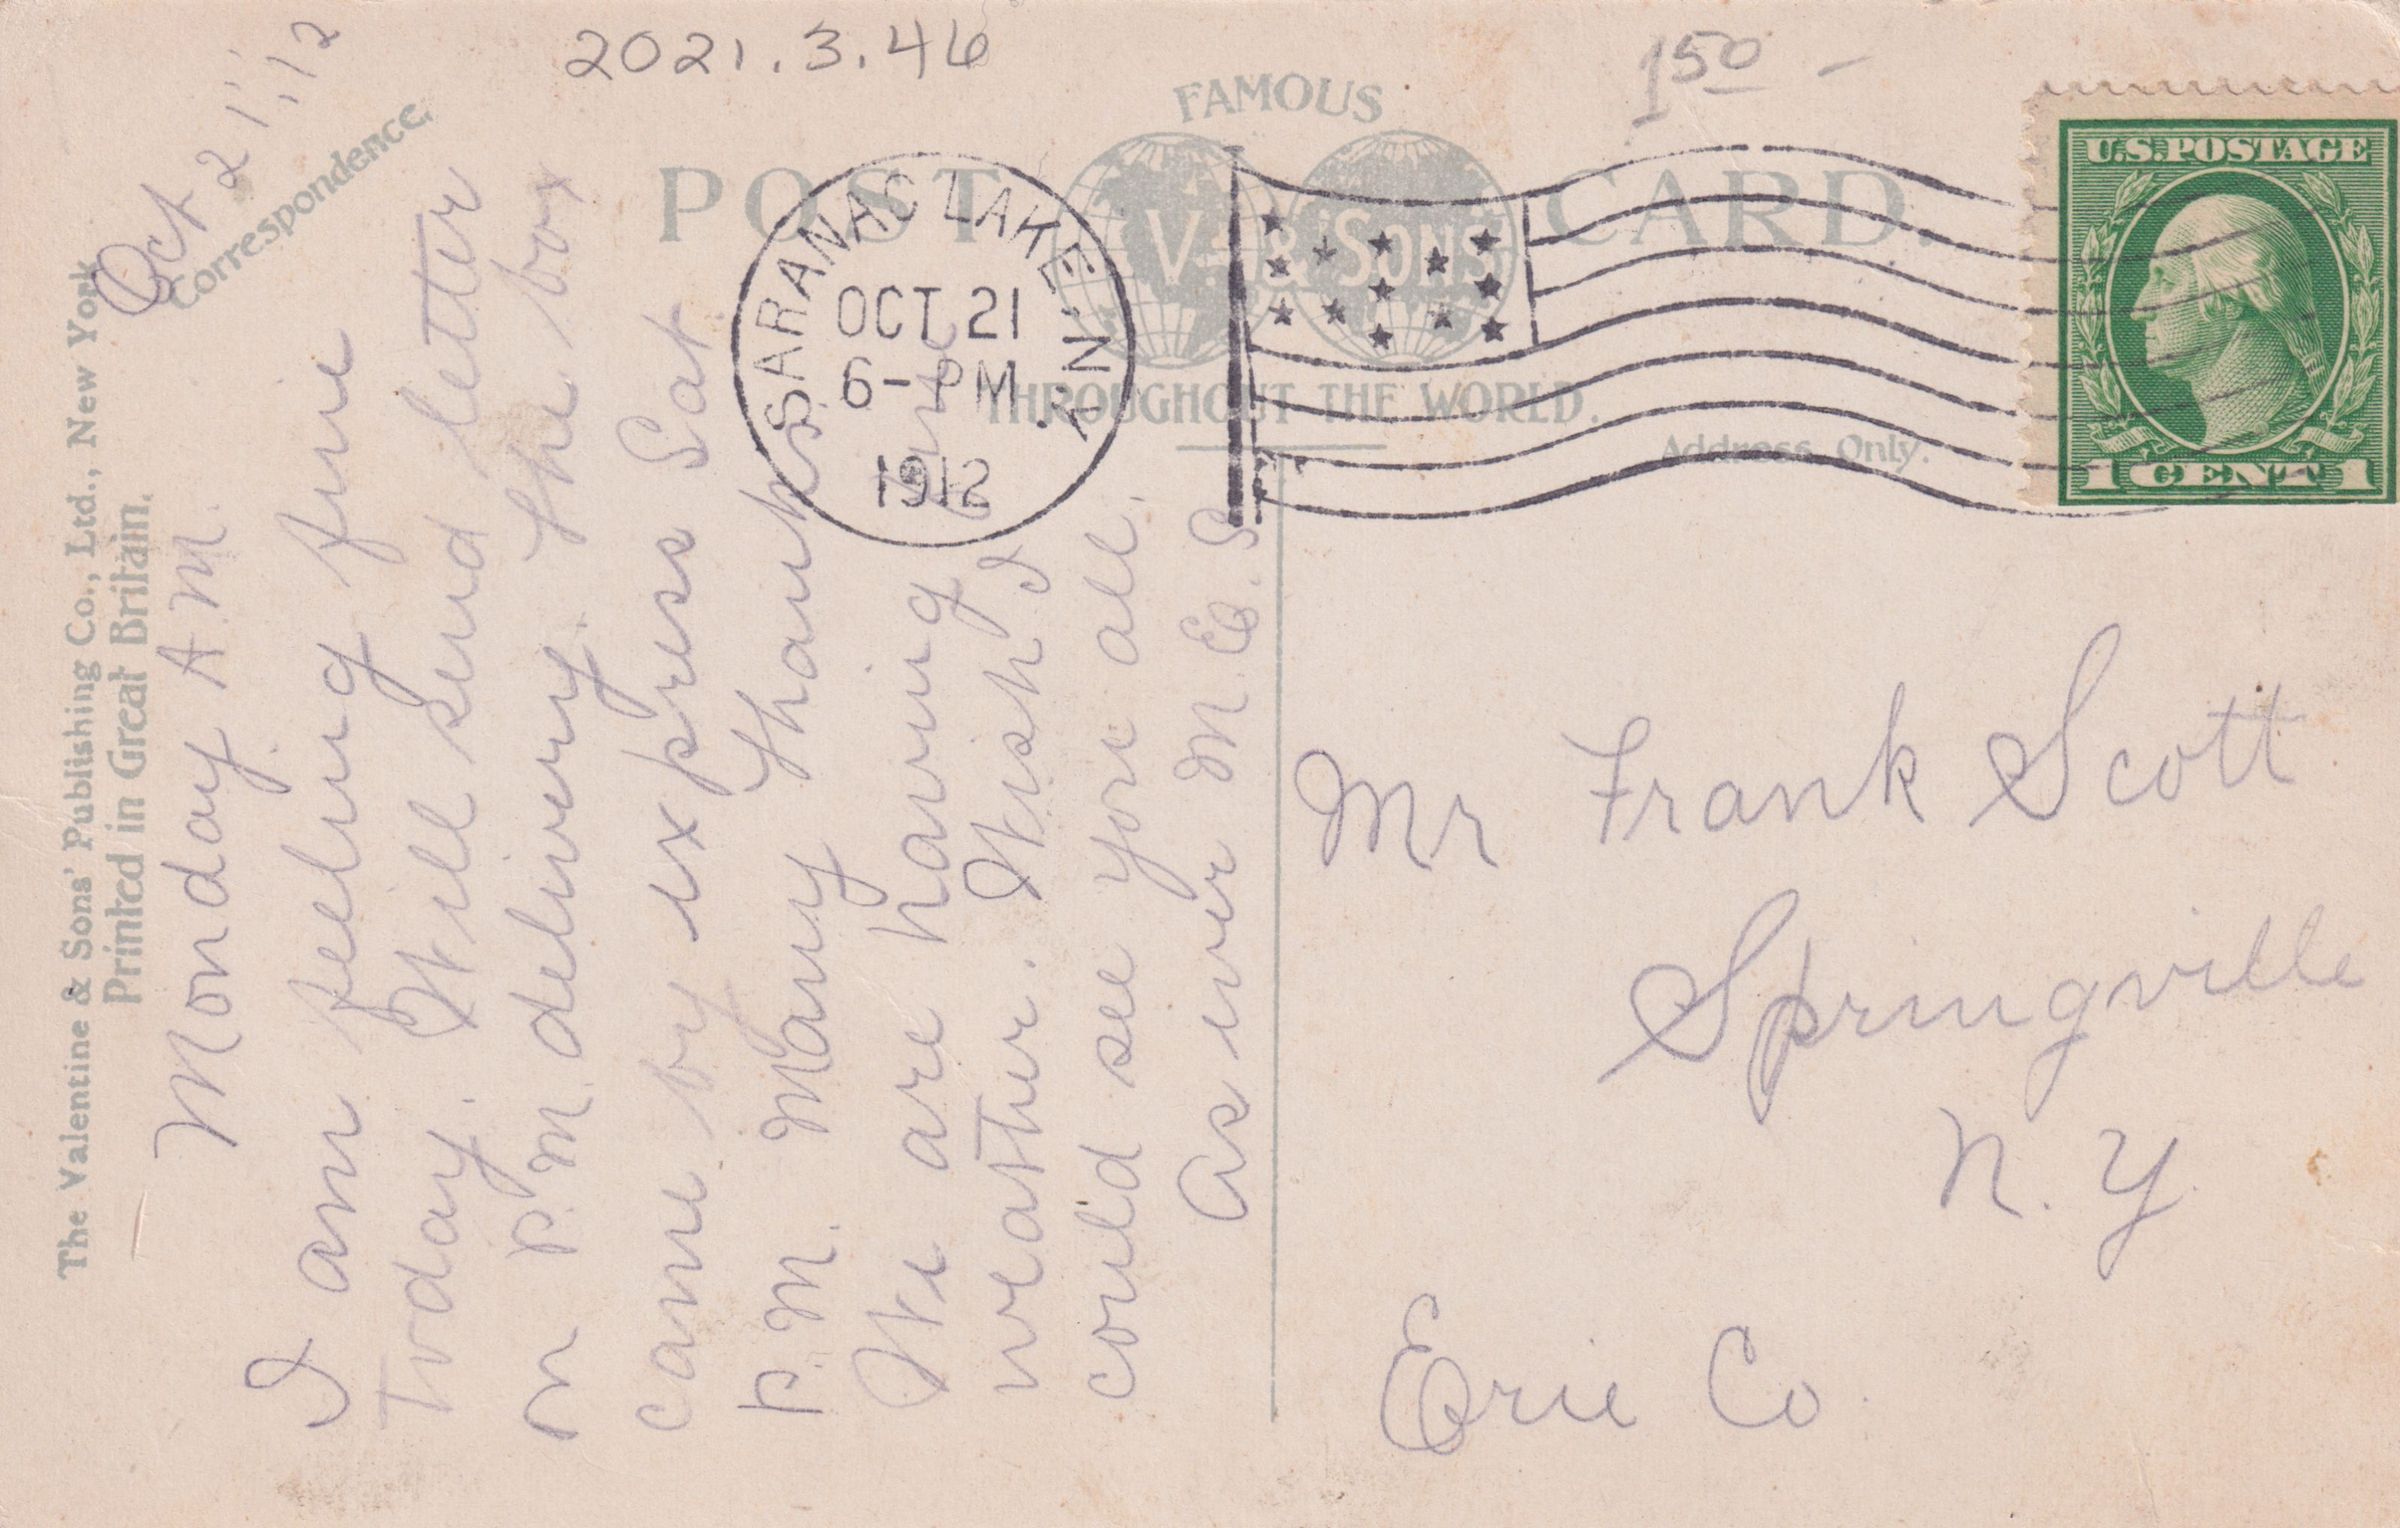 2021.3.46
1 50 -
FAMOUS
POST CARD.
V. & SONS
THROUGHOUT THE WORLD.
Address Only.
Correspondence.
The Valentine & Sons' Publishing Co., Ltd., New York
Printed in Great Britain.
SARANAC LAKE, N.Y.
OCT 21
6- PM
1912
U.S. POSTAGE
1 CENT 1
Oct 21", 12
Monday A.M.
I am feeling fine
Today. Will send letter
on P.M. delivery. The box
came by express Sat.
P.M. Many thanks
We are having fine
weather. Wish I
could see you all.
As ever M. E. S.
Mr Frank Scott
Springville
N. Y.
Erie Co.